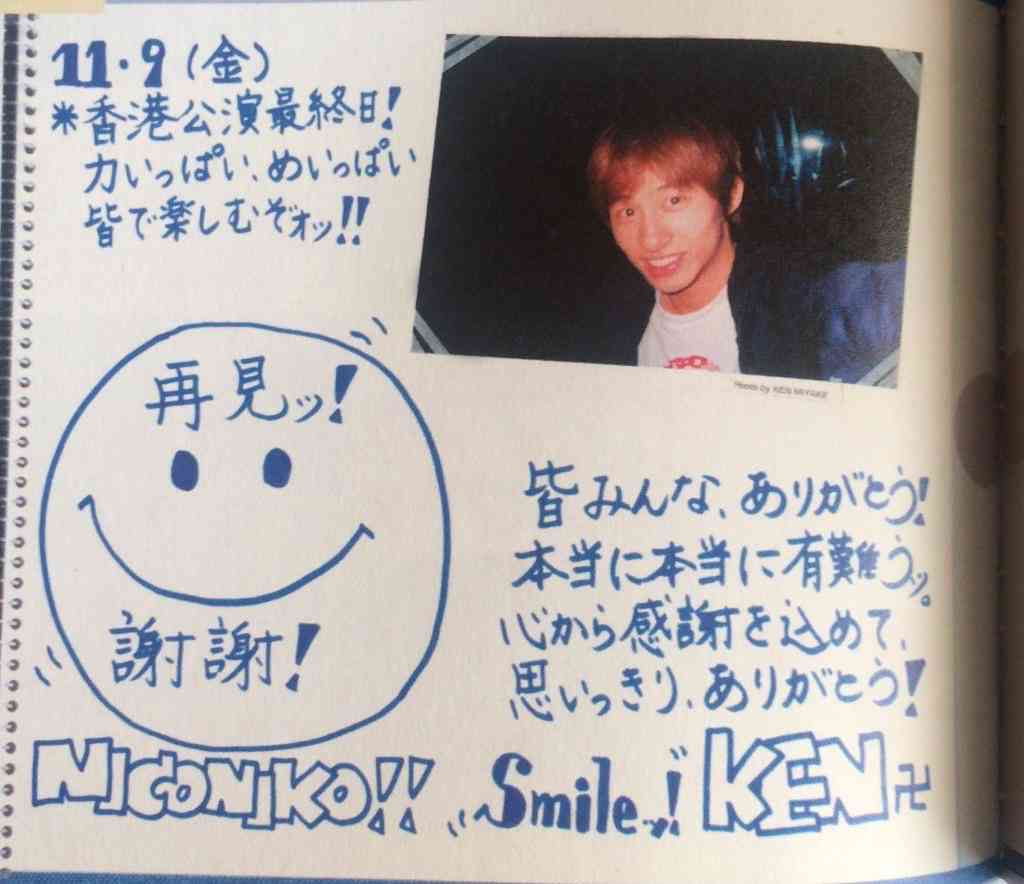 11・9(金)
*香港公演最終日!
力いっぱい、めいっぱい
皆で楽しむぞォッ!!
Photo by KEN MIYAKE
再見ッ!
謝謝!
皆みんな、ありがとう!
本当に本当に有難うッ。
心から感謝を込めて、
思いっきり、ありがとう!
NICONIKO!!
Smileッ!
KEN卍